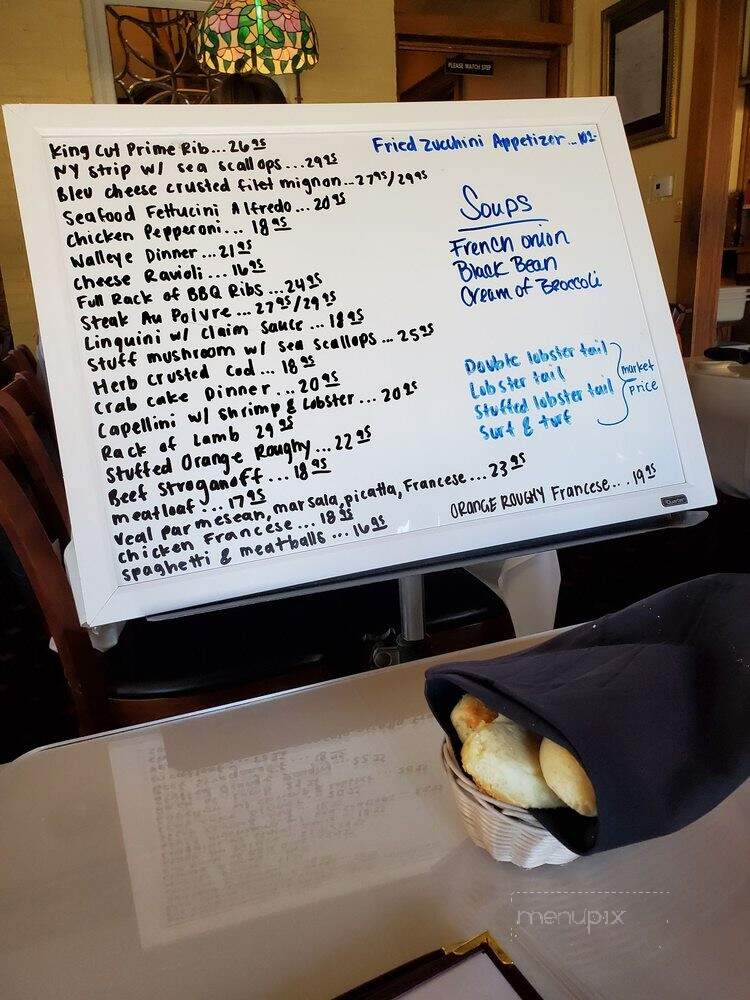 PLEASE WATCH STEP
King Cut Prime Rib...26 95
NY Strip w/ sea scallops...29 95
Bleu cheese crusted filet mignon...27 95/29 95
Seafood Fettucini Alfredo...20 95
Chicken Pepperoni... 18 95
Walleye Dinner...21 95
Cheese Ravioli...16 95
Full Rack of BBQ Ribs...24 95
Steak Au Polvre...27 95/29 95
Linguini w/ Claim Sauce...18 95
Stuff mushroom w/ sea scallops...25 95
Herb crusted Cod...18 95
Crab cake Dinner...20 95
Capellini w/ Shrimp & Lobster...20 95
Rack of Lamb 29 95
Stuffed Orange Roughy...22 95
Beef Stroganoff...18 95
meatloaf...17 95
Veal Parmesean, marsala, picatta, Francese...23 95
chicken Francese...18 95
spaghetti & meatballs...16 95
Fried Zucchini Appetizer...
Soups
French onion
Black Bean
Cream of Broccoli
Double lobster tail
Lobster tail
Stuffed lobster tail
Surf & turf
market
price
ORANGE ROUGHY Francese...19 95
Quartet
menupix